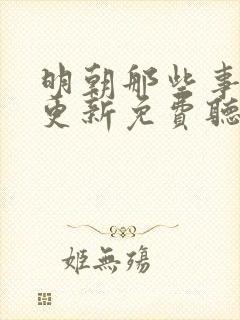 明朝那些事
更新免費聽
姬無殤